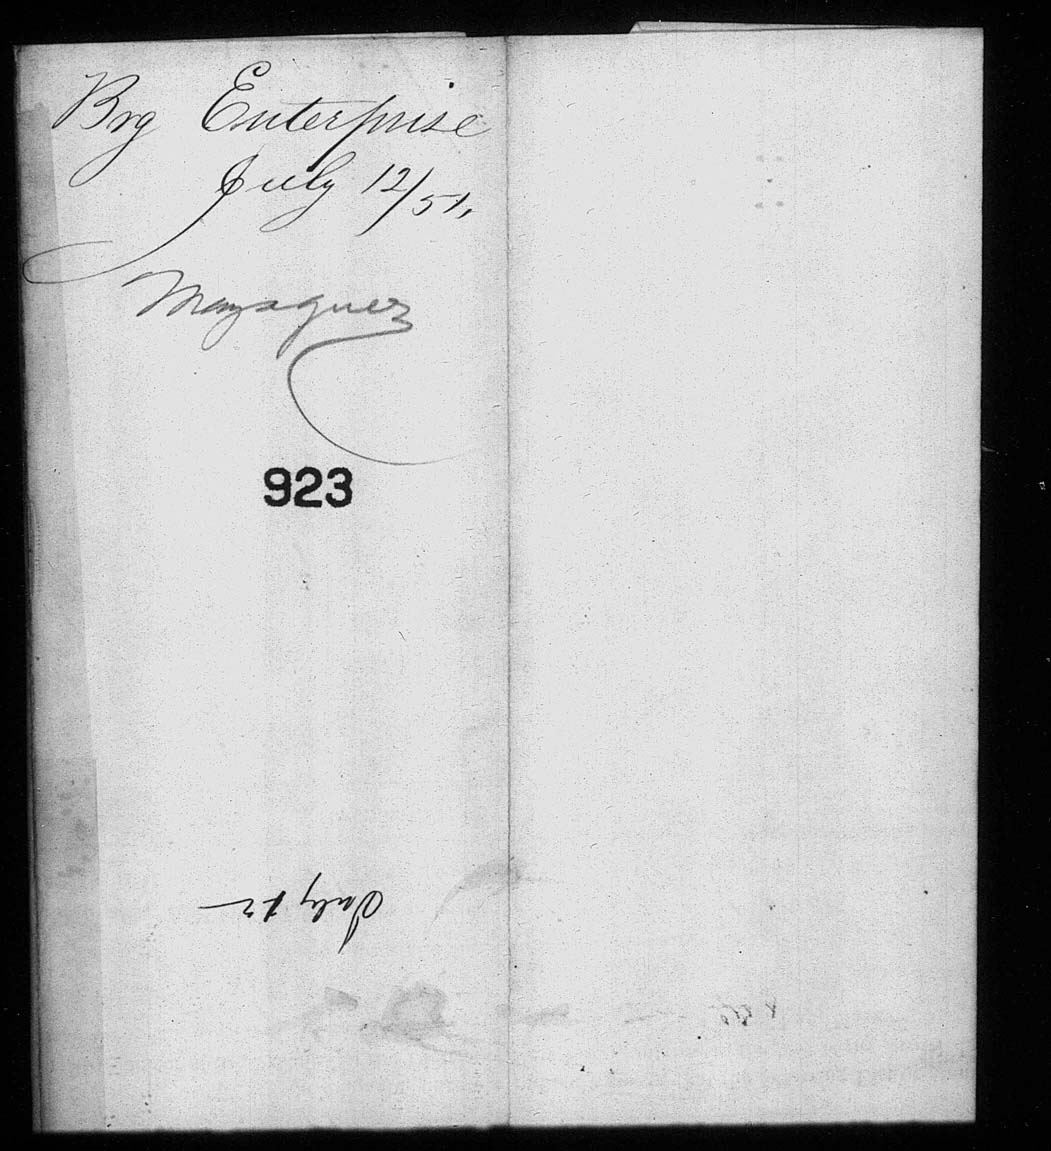 Brg Enterprise
July 12/51,
Mayaguez
923
July 12